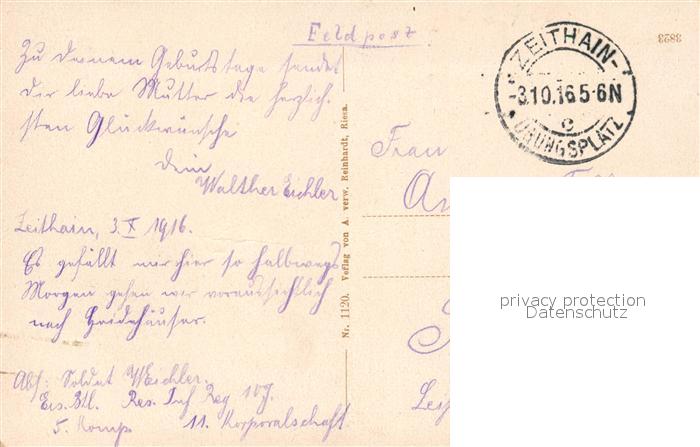 Feldpost
3823
ZEITHAIN-
-3.10.16 5-6N
c
ÜBUNGSPLATZ
Zu deinem Geburtstage sendet
dir liebe Mutter die herzlich-
sten Glückwünsche
dein
Walther Eichler
Zeithain, 3. X 1916.
Es gefällt mir hier so halbwegs
Morgen gehen wir voraussichtlich
nach Heidehäuser.
Abs: Soldat W Eichler.
Ers. Btl. Res. Inf Reg 107.
5. Komp 11. Korporalschaft
Nr. 1120. Verlag von A. verw. Reinhardt, Riesa.
Frau
privacy protection
Datenschutz